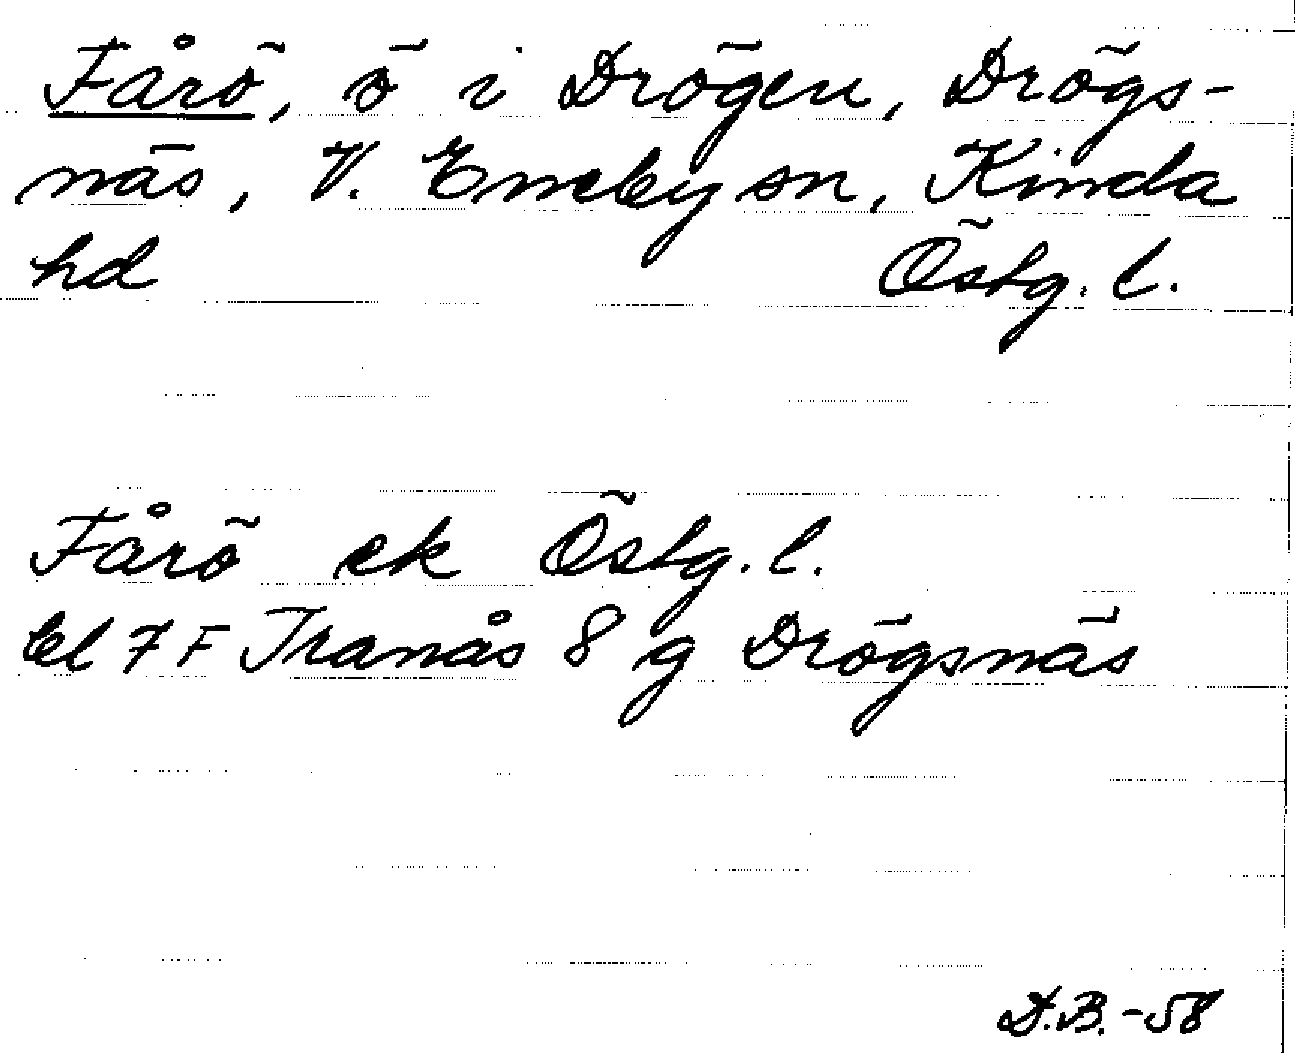 Fårö, ö i Drögen, Drögs-
näs, V. Eneby sn, Kinda
hd Östg. l.
Fårö ek Östg. l.
bl 7 F Tranås 8 g Drögsnäs
D.B. -58